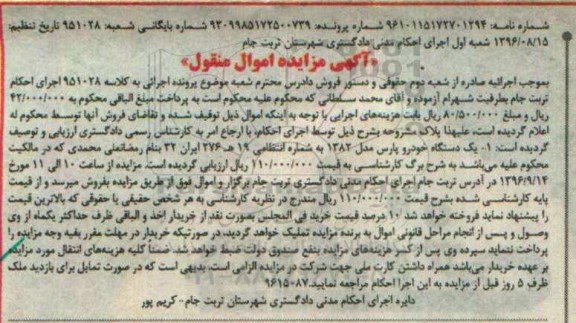 شماره نامه: ۹۶۱۰۱۱۵۱۷۲۷۰۱۲۹۴ شماره پرونده: ۹۳۰۹۹۸۵۱۷۲۵۰۰۷۳۹ شماره بایگانی شعبه: ۹۵۱۰۲۸ تاریخ تنظیم:
۱۳۹۶/۰۸/۱۵ شعبه اول اجرای احکام مدنی دادگستری شهرستان تربت جام
«آگهی مزایده اموال منقول»
بموجب اجرائیه صادره از شعبه دوم حقوقی و دستور فروش دادرس محترم شعبه موضوع پرونده اجرائی به کلاسه ۹۵۱۰۲۸ اجرای احکام
تربت جام بطرفیت شهرام آزمون و آقای محمد سلطانی که محکوم علیه محکوم است به پرداخت مبلغ الباقی محکوم به ۴۲/۰۰۰/۰۰۰
ریال و مبلغ ۸۰/۵۰۰/۰۰۰ ریال بابت هزینه‌های اجرایی با توجه به اینکه اموال ذیل توقیف شده و تقاضای فروش آنها توسط محکوم له
اعلام گردیده است، علیهذا پلاک مشروحه بشرح ذیل توسط اجرای احکام، با ارجاع امر به کارشناس رسمی دادگستری ارزیابی و توصیف
گردیده است: ۱- یک دستگاه خودرو پارس مدل ۱۳۸۲ به شماره انتظامی ۱۹ هـ ۲۷۶ ایران ۳۲ بنام رمضانعلی محمدی که در مالکیت
محکوم علیه می‌باشد به شرح برگ کارشناسی به قیمت ۱۱۰/۰۰۰/۰۰۰ ریال ارزیابی گردیده است. مزایده از ساعت ۱۰ الی ۱۱ مورخ
۱۳۹۶/۹/۱۴ در آدرس تربت جام اجرای احکام مدنی دادگستری تربت جام برگزار و اموال فوق از طریق مزایده بفروش میرسد و از قیمت
پایه کارشناسی شده بشرح قیمت ۱۱۰/۰۰۰/۰۰۰ ریال مندرج در نظریه کارشناسی به هر شخص حقیقی یا حقوقی که بالاترین قیمت
را پیشنهاد نماید فروخته خواهد شد ۱۰ درصد قیمت خرید فی المجلس بصورت نقد از خریدار اخذ و الباقی ظرف حداکثر یکماه از وی
وصول و پس از انجام مراحل قانونی اموال به برنده مزایده تملیک خواهد گردید، در صورتیکه خریدار در مهلت مقرر بقیه وجه مزایده را
پرداخت ننماید سپرده وی پس از کسر هزینه‌های مزایده بنفع صندوق دولت ضبط خواهد شد ضمنا کلیه هزینه‌های انتقال مورد مزایده
بر عهده خریدار می‌باشد همراه داشتن کارت ملی جهت شرکت در مزایده الزامی است. بدیهی است که در صورت تمایل برای بازدید ملک
ظرف ۵ روز قبل از مزایده به این اجرا احکام مراجعه نمایید. ۹۶۱۵۰۸۷
دایره اجرای احکام مدنی دادگستری شهرستان تربت جام - کریم پور